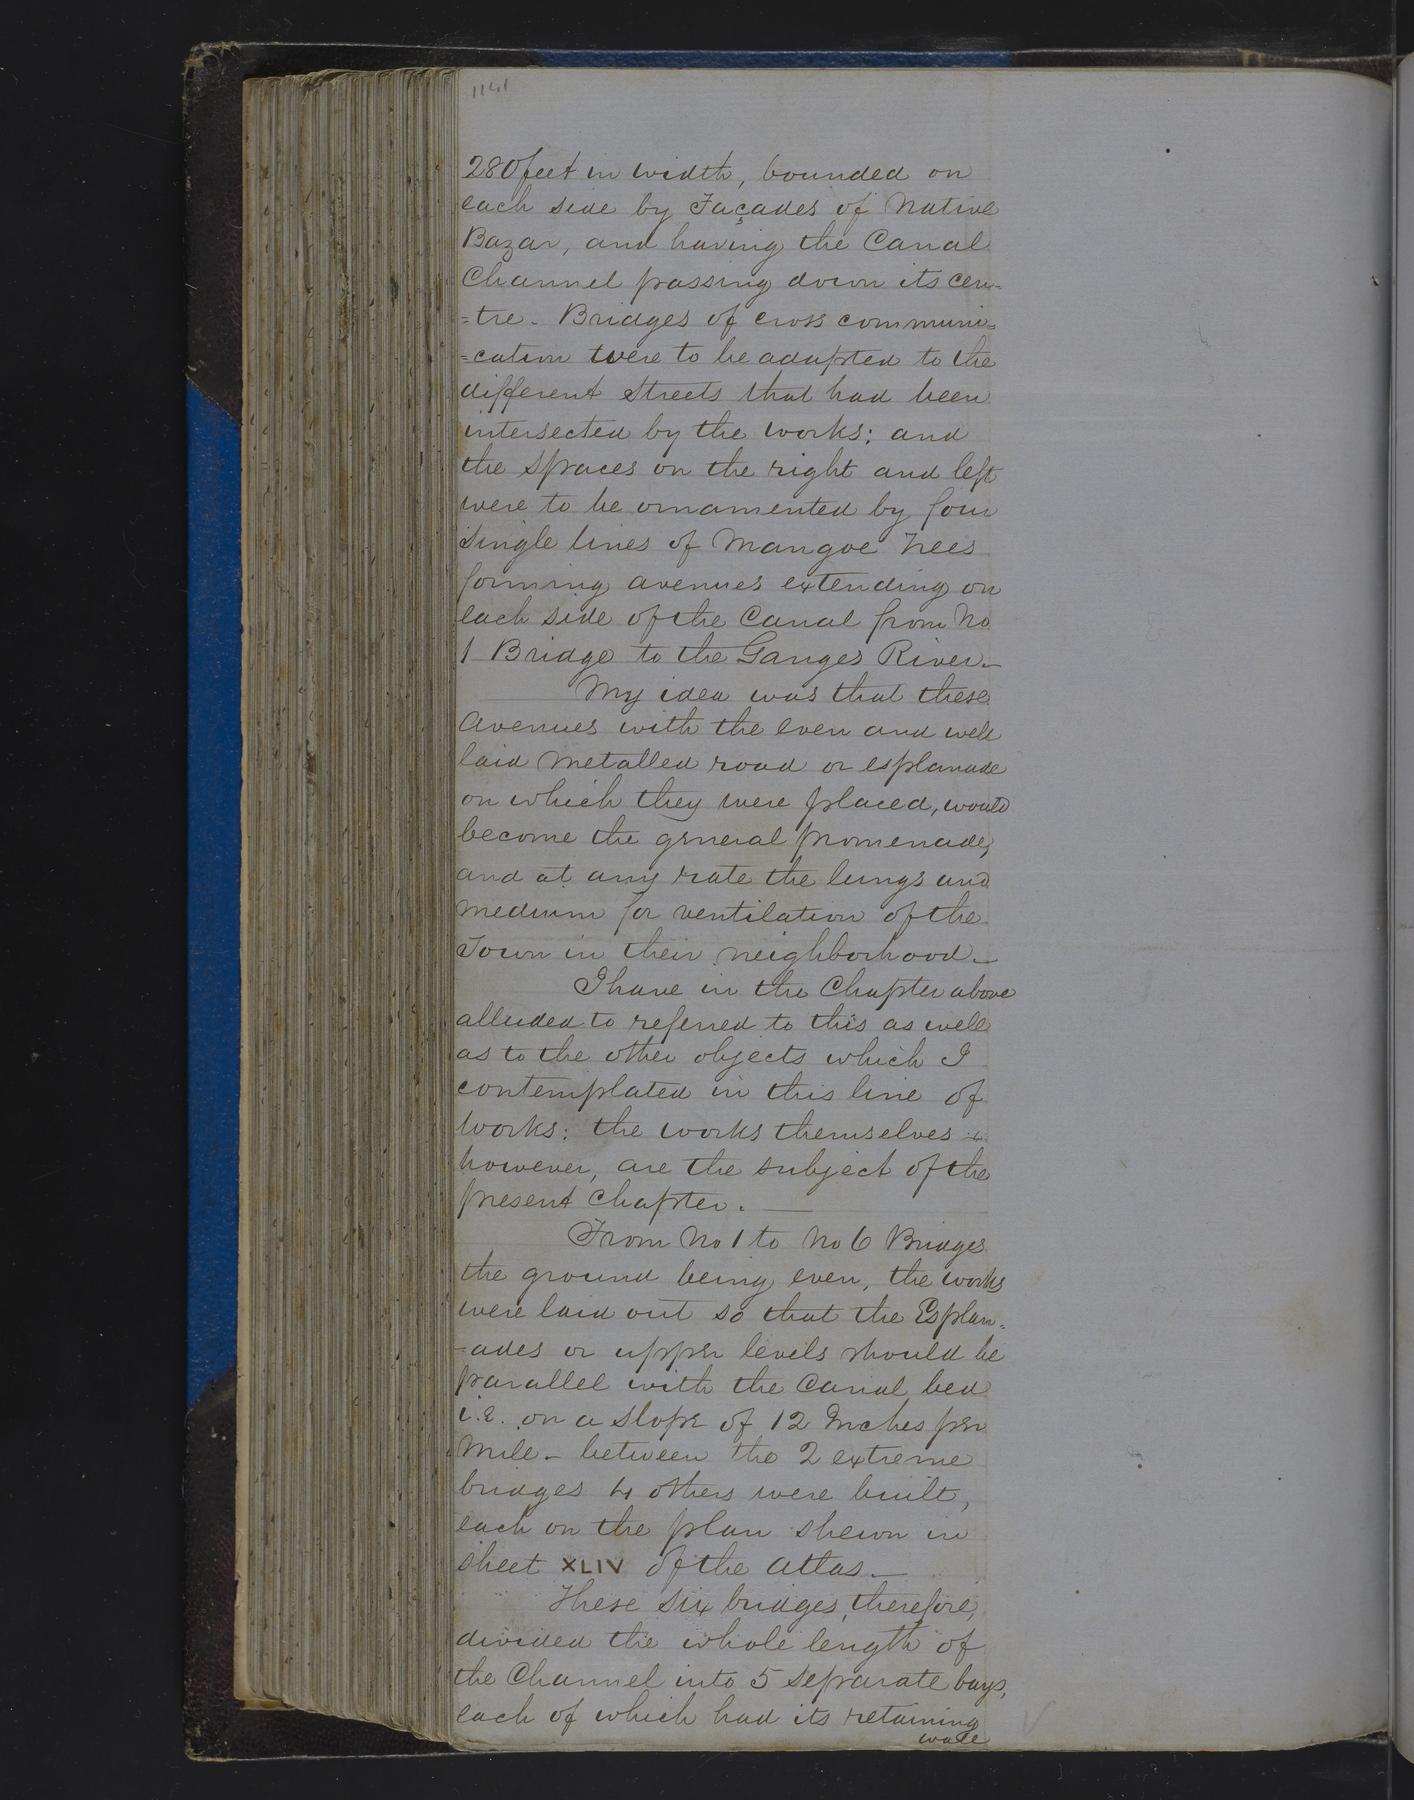 1141
280 feet in width, bounded on
each side by Façades of Native
Bazar, and having the Canal
Channel passing down its cen-
=tre. Bridges of cross communi=
=cation were to be adapted to the
different Streets that had been
intersected by the works: and
the spaces on the right and left
were to be ornamented by four
single lines of Mangoe Trees
forming avenues extending on
each side of the Canal from No
1 Bridge to the Ganges River.—
My idea was that these
Avenues with the even and well
laid Metalled road or esplanade
on which they were placed, would
become the general promenade,
and at any rate the lungs and
medium for ventilation of the
Town in their neighborhood.—
I have in the Chapter above
alluded to referred to this as well
as to the other objects which I
contemplated in this line of
works: the works themselves
however, are the subject of the
present Chapter.—
From No 1 to No 6 Bridges
the ground being even, the works
were laid out so that the Esplan=
=ades or upper levels should be
parallel with the Canal bed
i.e. on a slope of 12 Inches per
Mile - between the 2 extreme
bridges 4 others were built,
each on the plan shewn in
sheet XLIV of the atlas.—
These six bridges, therefore,
divided the whole length of
the Channel into 5 separate bays,
each of which had its retaining
wall